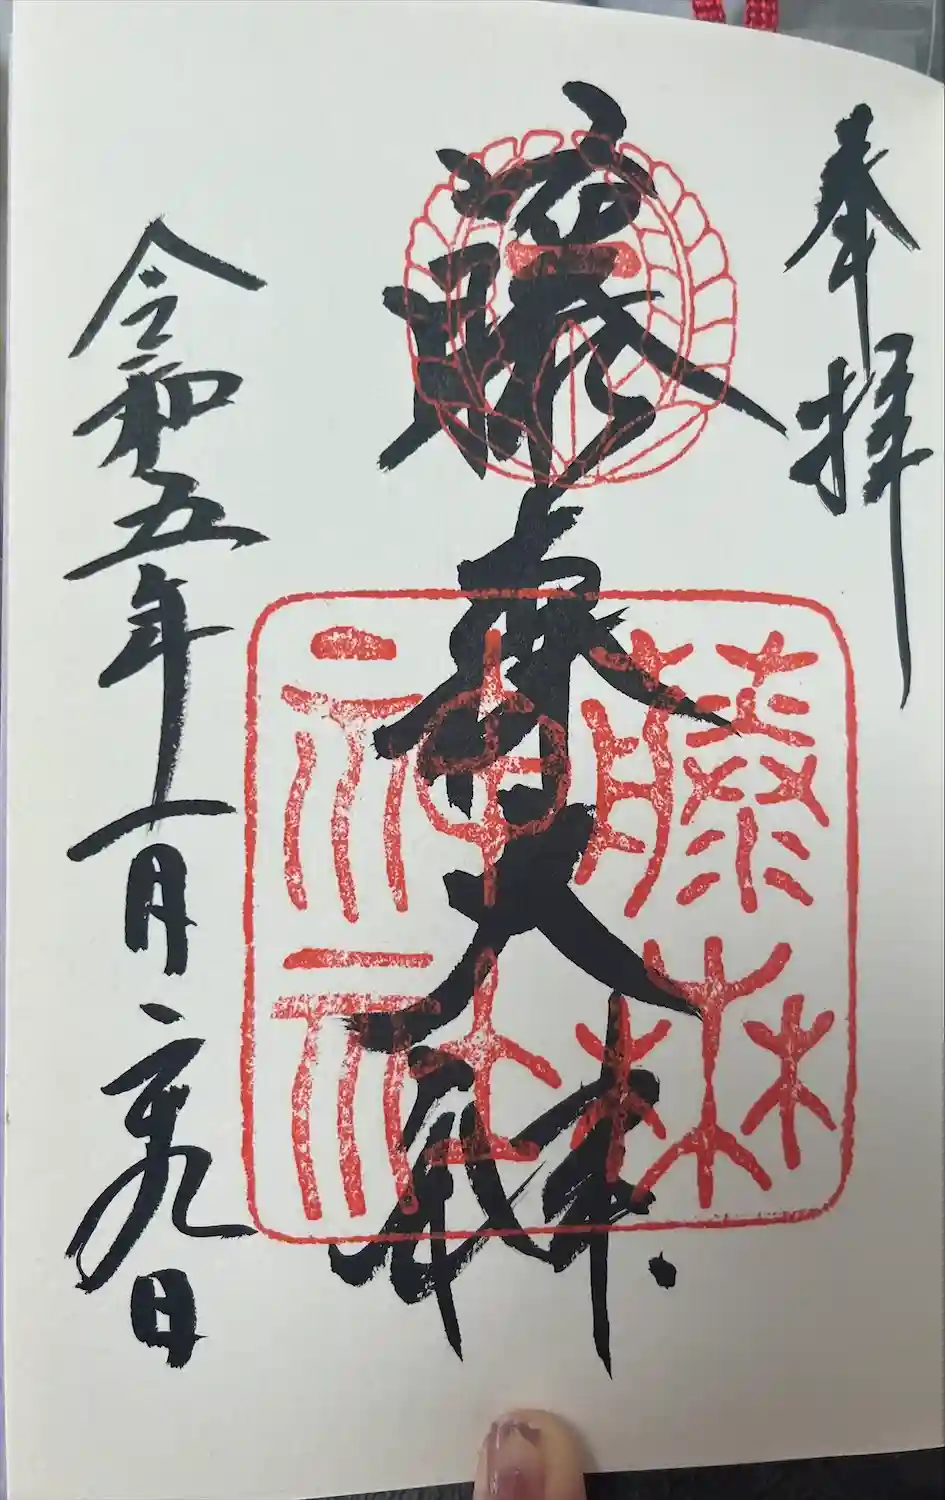 奉拝
藤森大神
藤森
神社
令和五年一月二十九日